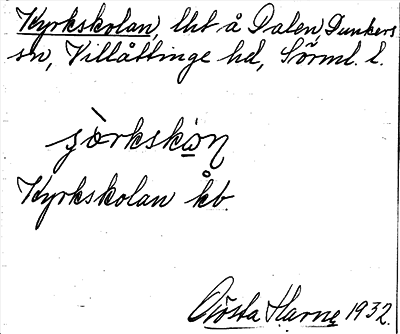 Kyrkskolan, lht å Dalen, Dunkers
sn, Villåttinge hd, Sörml. l.
Kyrkskolan kb.
Gösta Harne 1932.